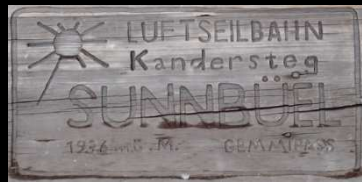 LUFTSEILBAHN
Kandersteg
SUNNBÜEL
1936 m.ü.M. GEMMIPASS